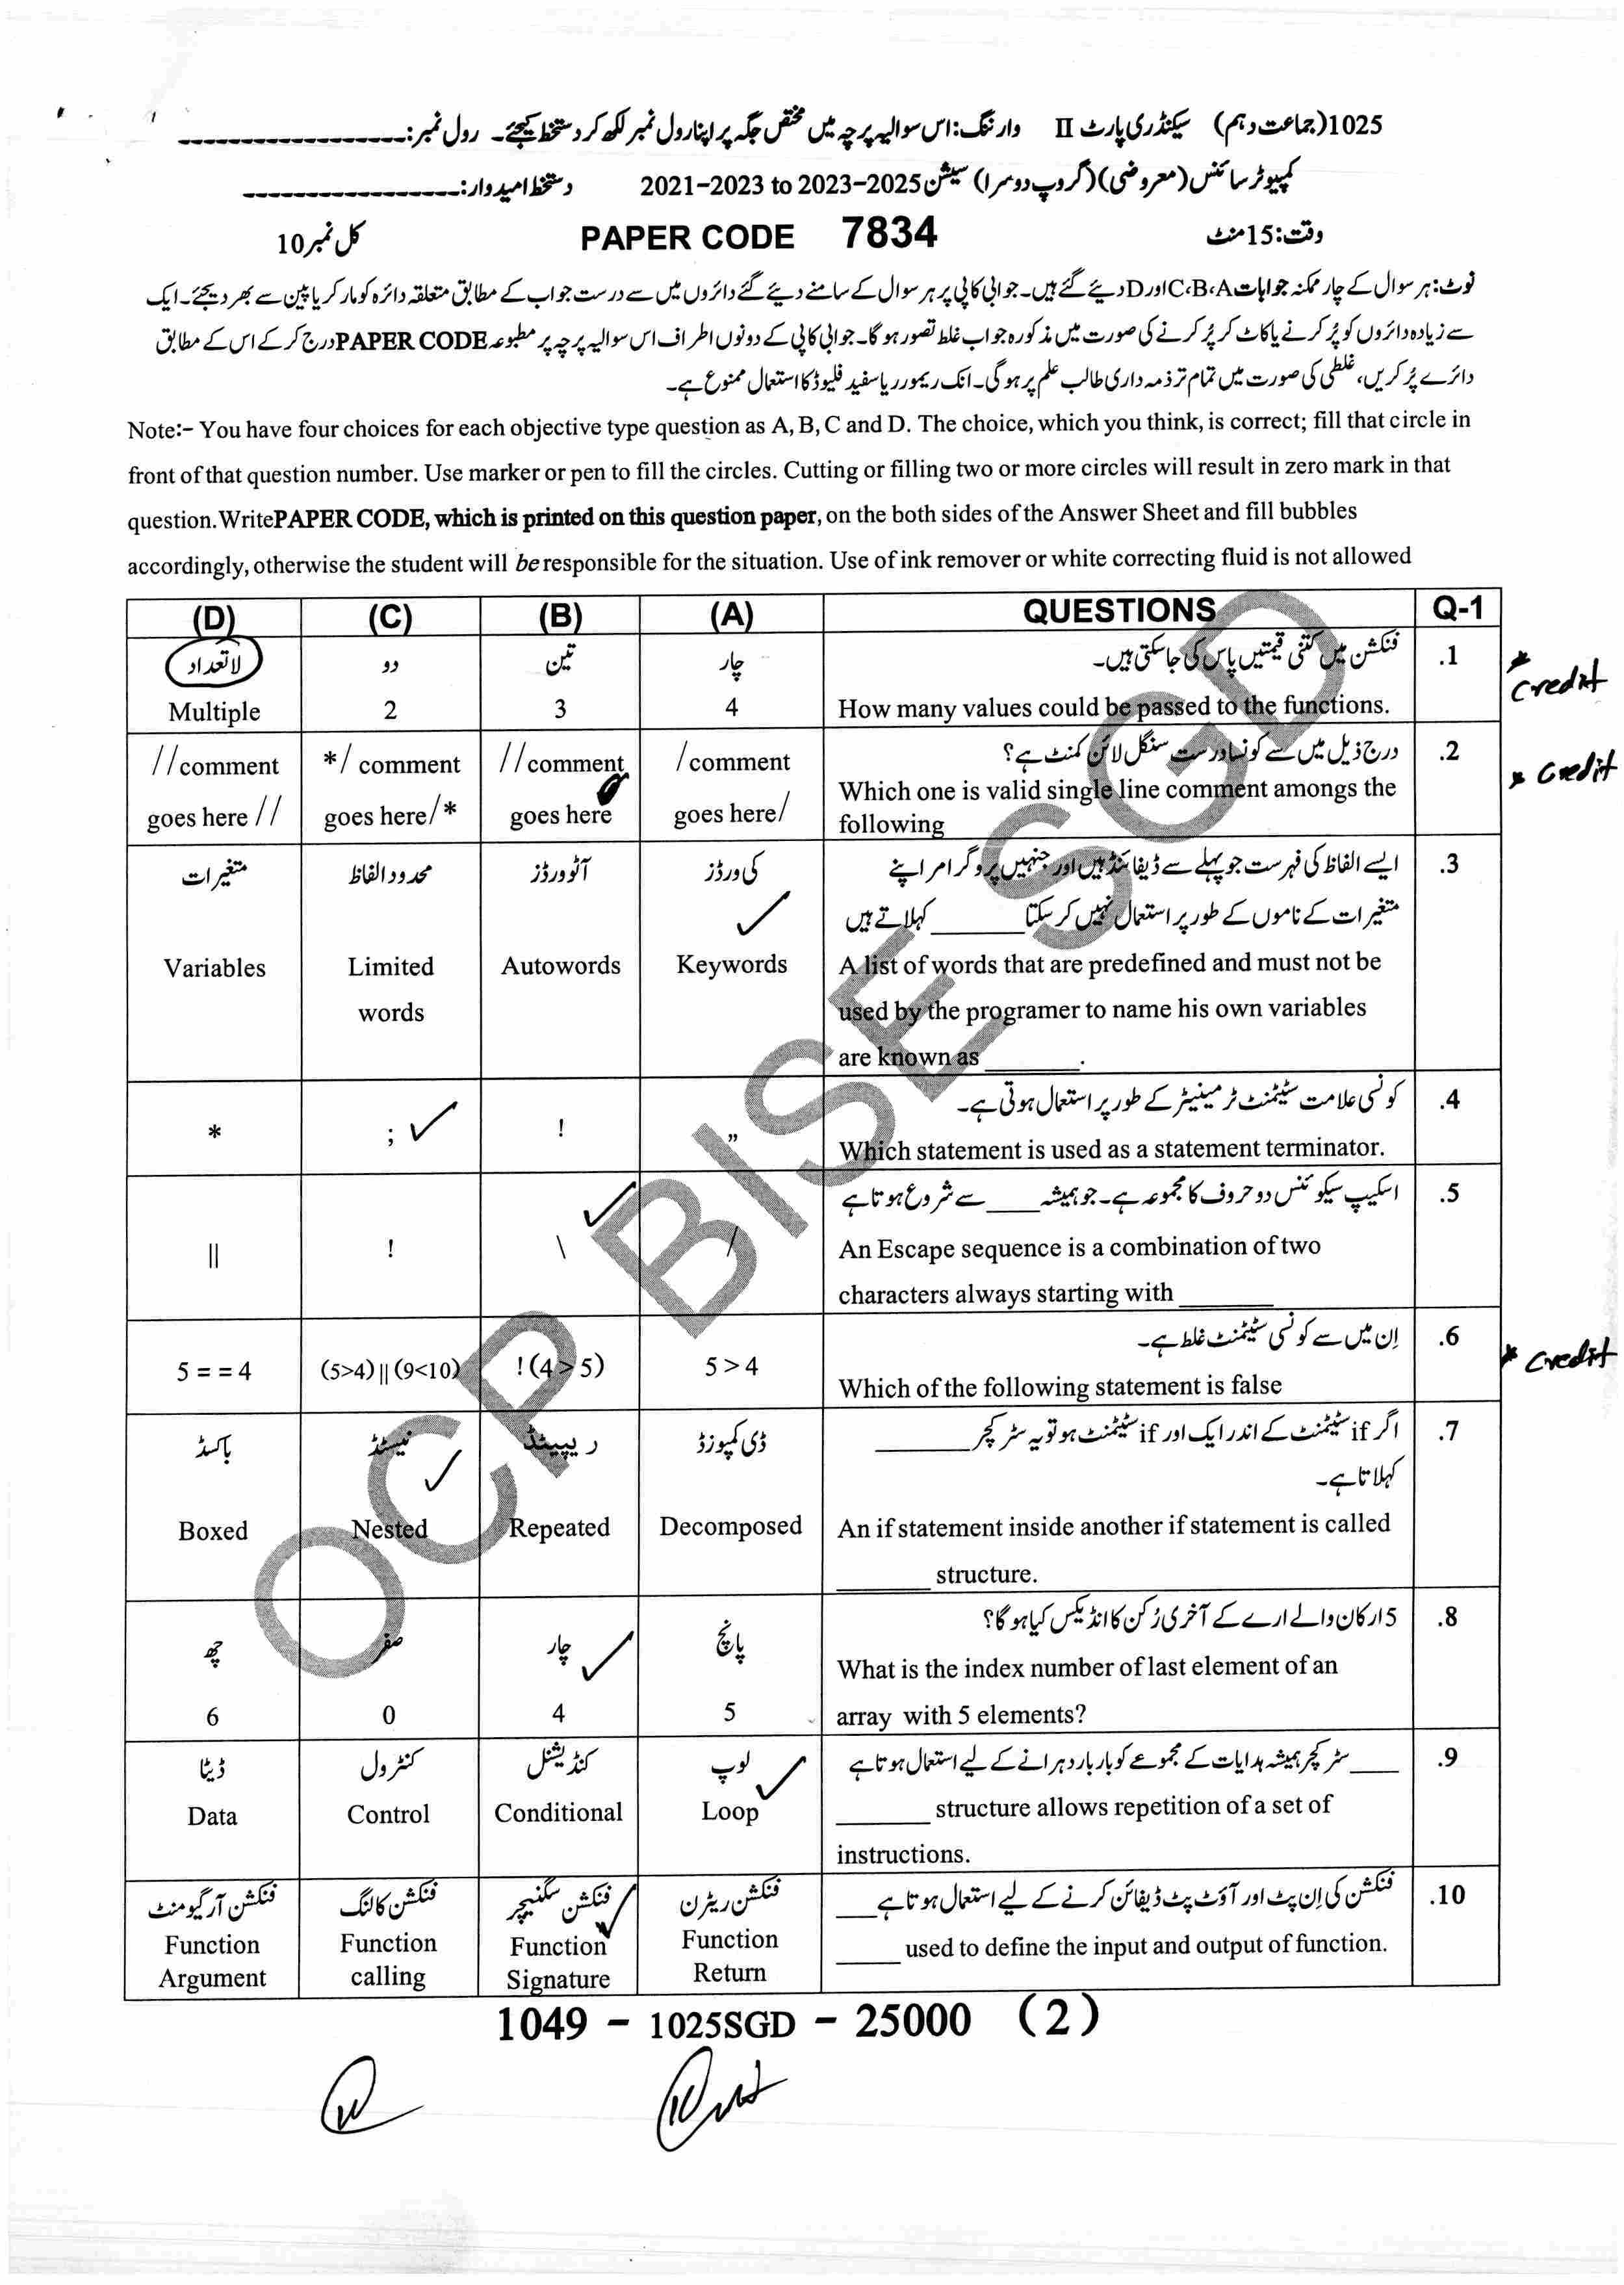 1025(جماعت دہم) سیکنڈری پارٹ II وارننگ:اس سوالیہ پرچہ میں مختص جگہ پر اپنا رول نمبر لکھ کر دستخط کیجئے۔ رول نمبر:
کمپیوٹر سائنس (معروضی)(گروپ دوسرا) سیشن 2021-2023 to 2023-2025 دستخط امیدوار:
وقت:15 منٹ PAPER CODE 7834 کل نمبر 10
نوٹ:ہر سوال کے چار ممکنہ جوابات C،B،A اور D دیئے گئے ہیں۔ جوابی کاپی پر ہر سوال کے سامنے دیئے گئے دائروں میں سے درست جواب کے مطابق متعلقہ دائرہ کو مارکر یا پین سے بھر دیجئے۔ ایک
سے زیادہ دائروں کو پُر کرنے یا کاٹ کر پُر کرنے کی صورت میں مذکورہ جواب غلط تصور ہو گا۔ جوابی کاپی کے دونوں اطراف اس سوالیہ پرچہ پر مطبوعہ PAPER CODE درج کر کے اس کے مطابق
دائرے پُر کریں، غلطی کی صورت میں تمام تر ذمہ داری طالب علم پر ہو گی۔ انک ریمور ریا سفید فلیوڈ کا استعمال ممنوع ہے۔
Note:- You have four choices for each objective type question as A, B, C and D. The choice, which you think, is correct; fill that circle in
front of that question number. Use marker or pen to fill the circles. Cutting or filling two or more circles will result in zero mark in that
question.WritePAPER CODE, which is printed on this question paper, on the both sides of the Answer Sheet and fill bubbles
accordingly, otherwise the student will be responsible for the situation. Use of ink remover or white correcting fluid is not allowed
(D) (C) (B) (A) QUESTIONS Q-1
لاتعداد دو تین چار فنکشن میں کتنی قیمتیں پاس کی جا سکتی ہیں۔ .1
Multiple 2 3 4 How many values could be passed to the functions.
* Credit
درج ذیل میں سے کونسا درست سنگل لائن کمنٹ ہے؟ .2
//comment */ comment //comment /comment Which one is valid single line comment amongs the
goes here // goes here/* goes here goes here/ following
* Credit
متغیرات محدود الفاظ آٹو ورڈز کی ورڈز ایسے الفاظ کی فہرست جو پہلے سے ڈیفائنڈ ہیں اور جنہیں پروگرامر اپنے .3
متغیرات کے ناموں کے طور پر استعمال نہیں کر سکتا ________ کہلاتے ہیں
Variables Limited Autowords Keywords A list of words that are predefined and must not be
words used by the programer to name his own variables
are known as ________.
کونسی علامت سٹیٹمنٹ ٹرمینیٹر کے طور پر استعمال ہوتی ہے۔ .4
* ; ! ,, Which statement is used as a statement terminator.
اسکیپ سیکوئنس دو حروف کا مجموعہ ہے۔ جو ہمیشہ ____ سے شروع ہوتا ہے .5
|| ! \ / An Escape sequence is a combination of two
characters always starting with ________
اِن میں سے کونسی سٹیٹمنٹ غلط ہے۔ .6
5 = = 4 (5>4) || (9<10) ! (4 > 5) 5 > 4 Which of the following statement is false
* Credit
باکسڈ نیسٹڈ ریپیٹڈ ڈی کمپوزڈ اگر if سٹیٹمنٹ کے اندر ایک اور if سٹیٹمنٹ ہو تو یہ سٹرکچر ________ .7
کہلاتا ہے۔
Boxed Nested Repeated Decomposed An if statement inside another if statement is called
________ structure.
5 ارکان والے ارے کے آخری رُکن کا انڈیکس کیا ہو گا؟ .8
چھ صفر چار پانچ What is the index number of last element of an
6 0 4 5 array with 5 elements?
ڈیٹا کنٹرول کنڈیشنل لوپ ____ سٹرکچر ہمیشہ ہدایات کے مجموعے کو بار بار دہرانے کے لیے استعمال ہوتا ہے .9
Data Control Conditional Loop ________ structure allows repetition of a set of
instructions.
فنکشن آرگیومنٹ فنکشن کالنگ فنکشن سگنیچر فنکشن ریٹرن فنکشن کی اِن پٹ اور آؤٹ پٹ ڈیفائن کرنے کے لیے استعمال ہوتا ہے ____ .10
Function Function Function Function ______ used to define the input and output of function.
Argument calling Signature Return
1049 - 1025SGD - 25000 (2)
OCP BISE SGD